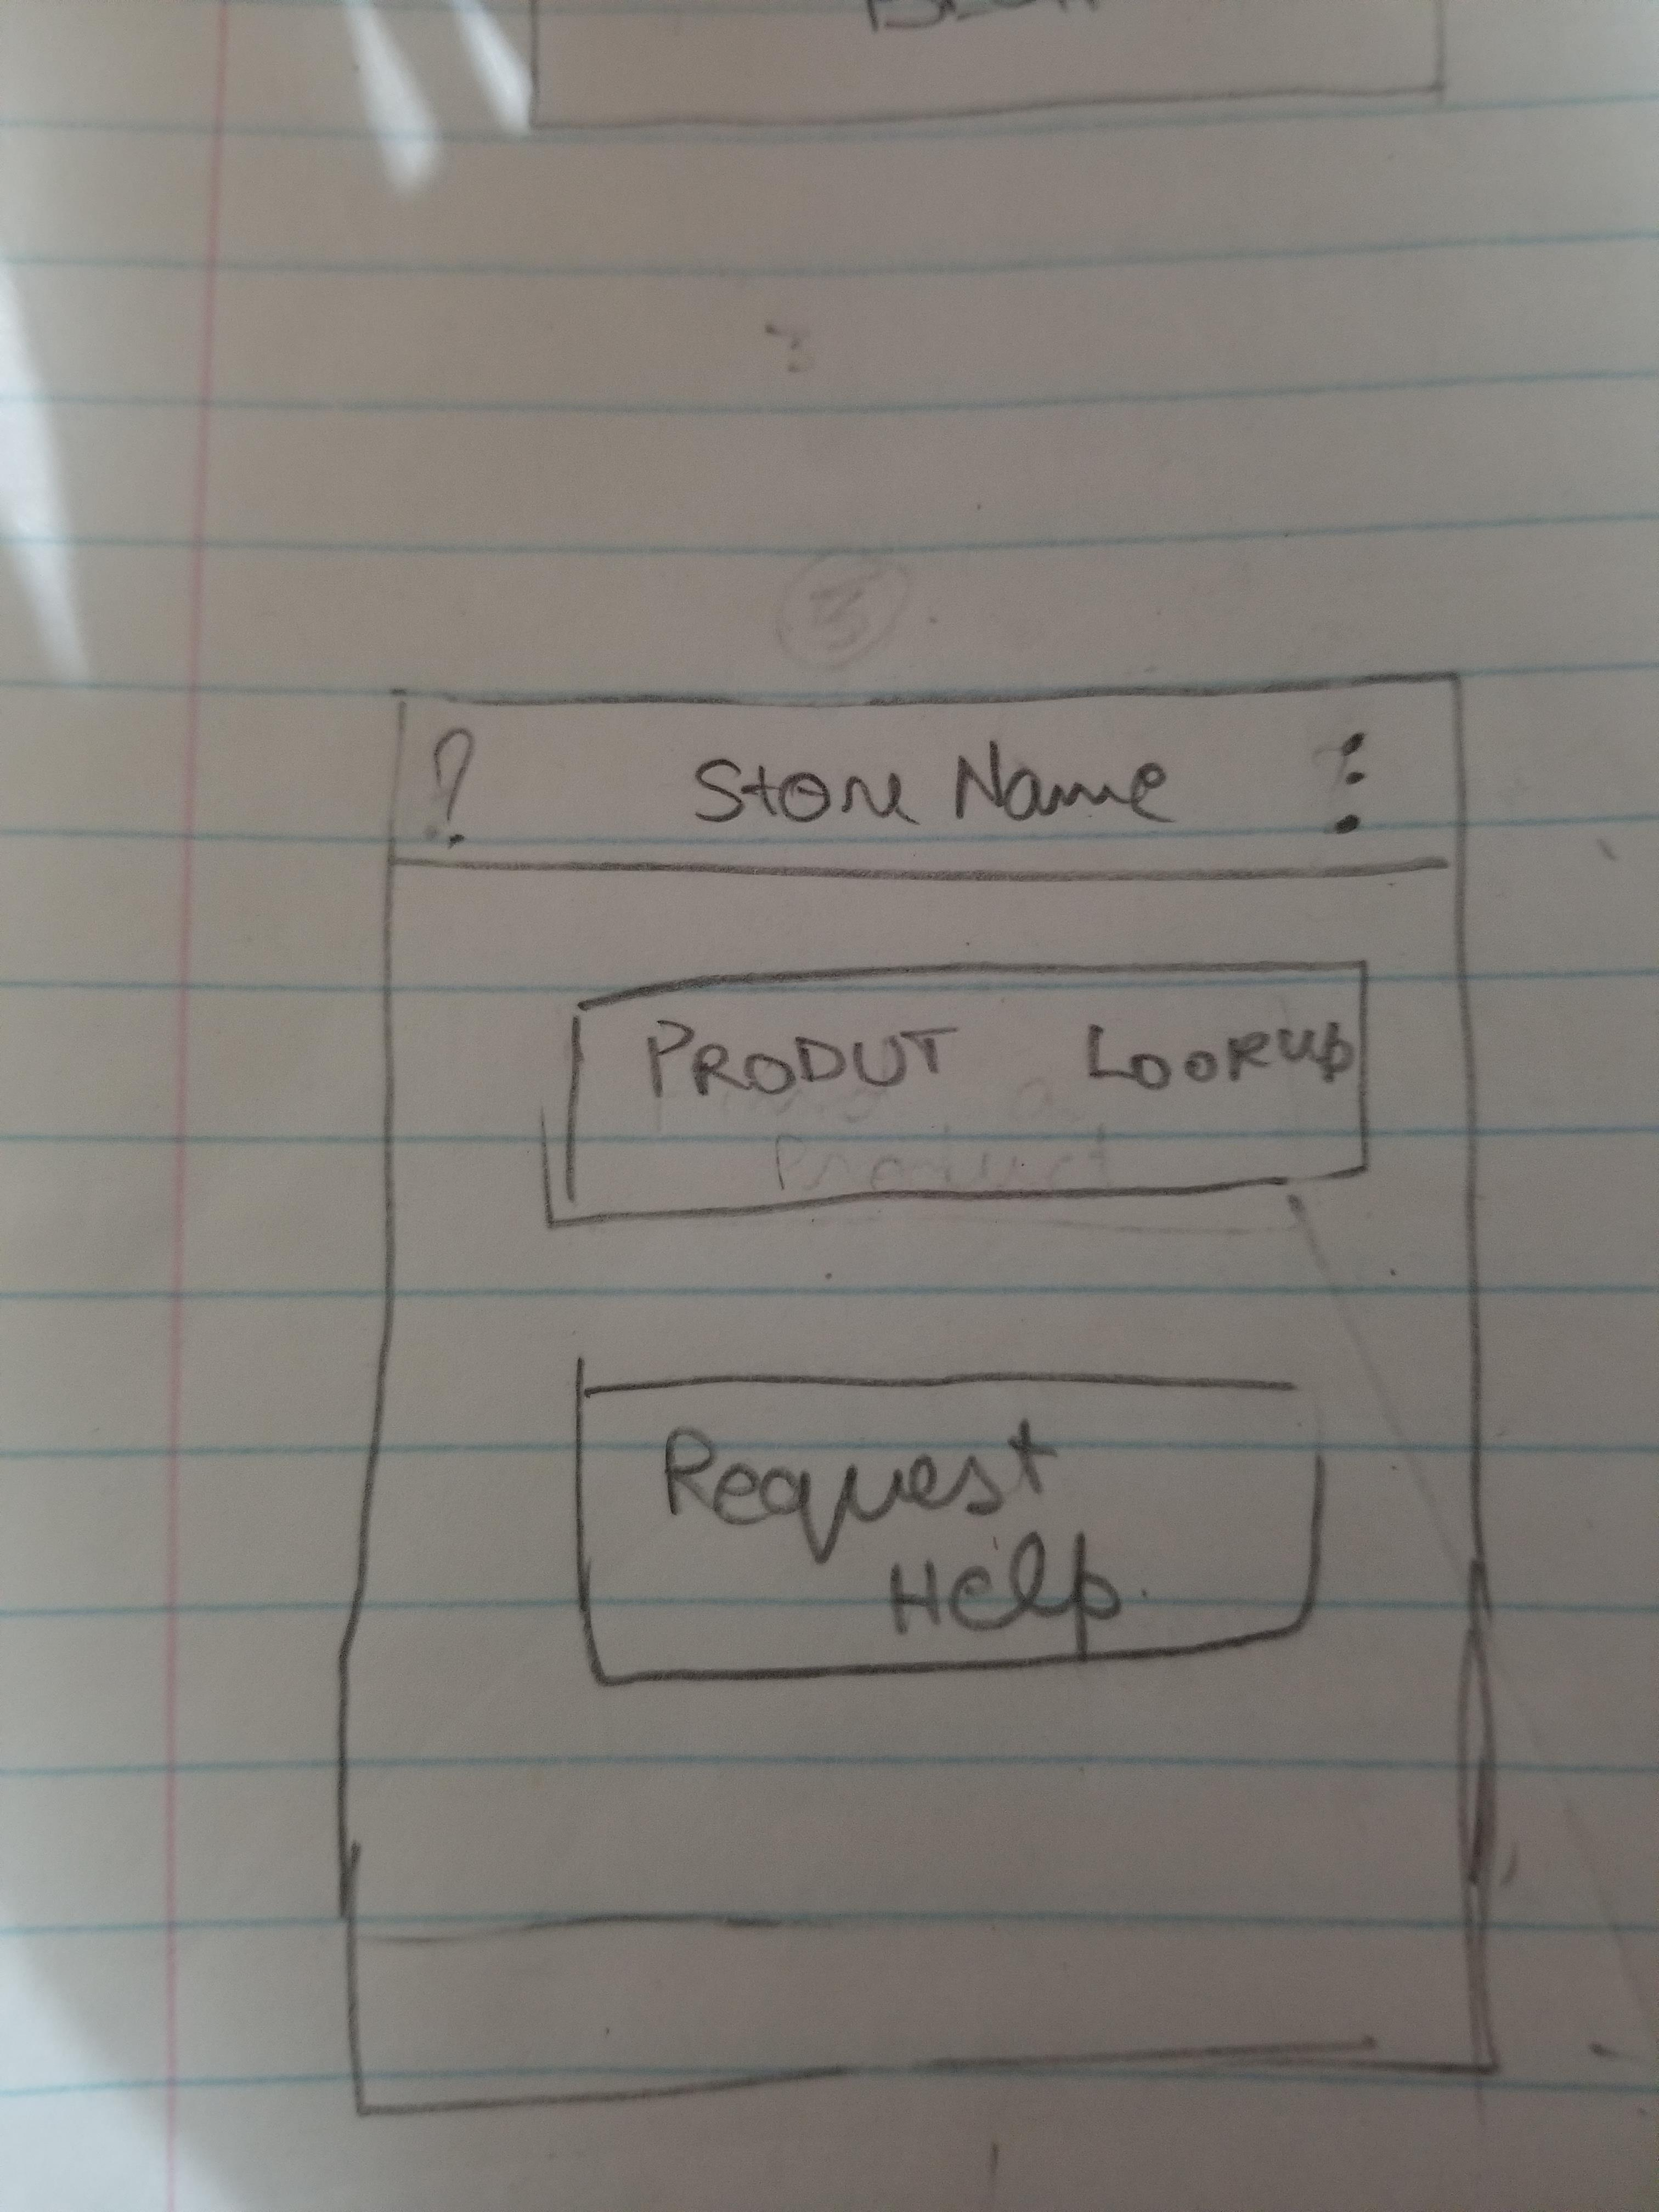 3
3
? Store Name :
PRODUT LOOKUP
Product
Request
Help.